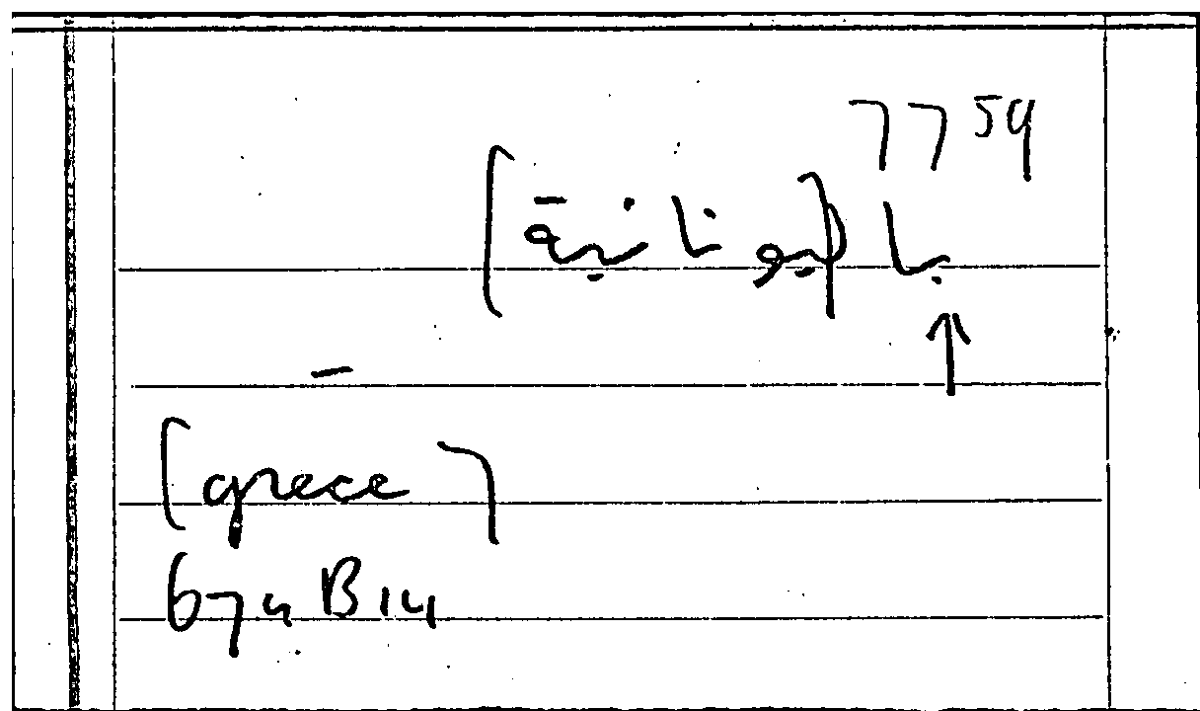 7759
با [يونانية]
—
[graece]
674 B 14